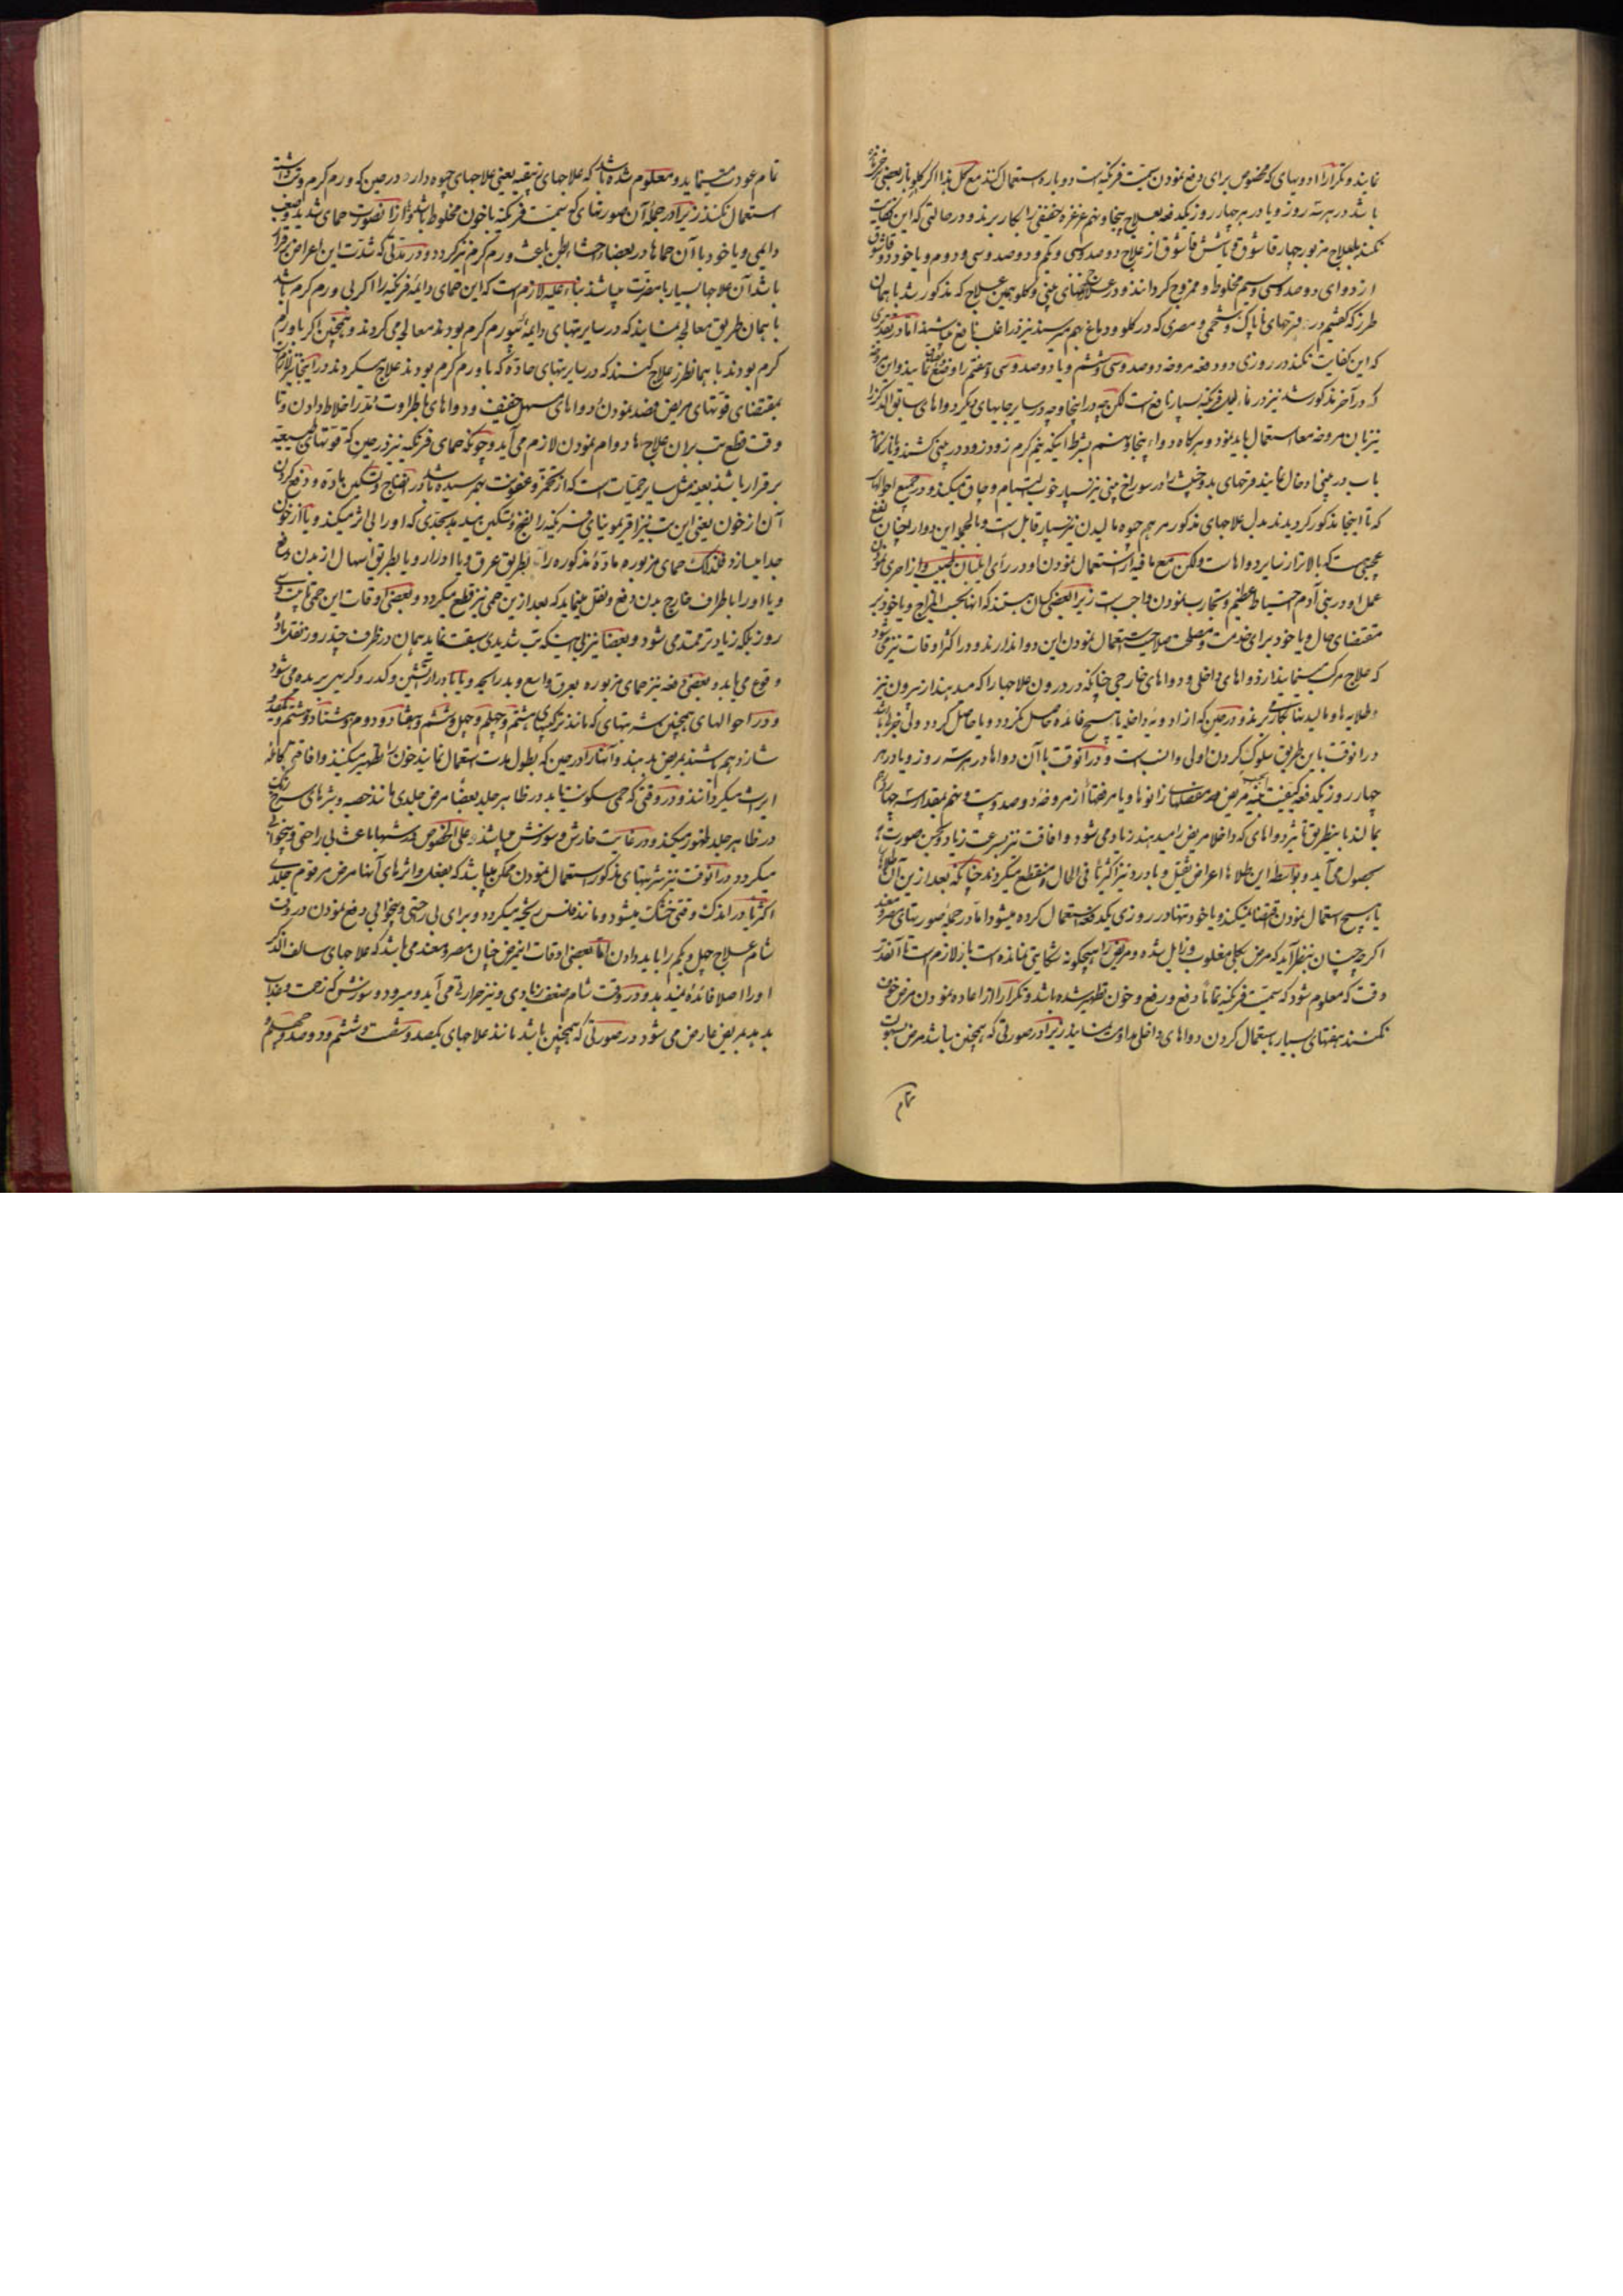 نمایند و تکرارًا دوبهای که مخصوص برای دفع نمودن سمیت فرنکیه است دوباره استعمال کنند مع کل هذا اکر کلو باز بعضی
باشد در هر سه روز و یا در هر چهار روز یکدفعه بعلاج پنجاه و پنجم غرغره خفیفی را بکار برند و در حالتی که این کفایت
نکند بعلاج مزبور چهار قاشوق و یا شش قاشوق از علاج دوصد و سی و یکم و دوصد و سی و دوم و یا خود دو قاشوق
از دوای دوصد و سی و سیم مخلوط و ممزوج کردانند و در علاج بینی و کلو همین علاج که مذکور شد با همان
طرز که کفتیم در قرحهای ناپاک و شحمی و مصری که در کلو و دماغ بهم میرسند نیز در اغلب نافع میباشند اما در بعضی
که این کفایت نکند در روزی دو دفعه مروخه دوصد و سی و ششم و یا دوصد و سی و هفتم را وضع نمایند و این مروخه
که در آخر مذکور شد نیز در فرنکیه بسیار نافع است لکن چه در اینجا و چه در سایر جایهای دیکر دواهای سابق الذکر را
نیز با آن مروخه معا استعمال باید نمود و هرکاه دواء پنجاه و ششم بشرط اینکه نیم کرم زود زود در بینی کشند و یا
باب در بینی ادخال نمایند قرحهای بد و خبیث را در سوراخ بینی نیز بسیار خوب التیام و چاق میکند و در جمیع احوالهای
که تا اینجا مذکور کردیدند بدل علاجهای مذکور مرهم جیوه مالیدن نیز بسیار قابل است و بالجمله این دوا را چنان نفع
عجیبی است که بالاتر از سایر دواهاست ولکن مع ما فیه از استعمال نمودن او در رأی طبیبان لبیب و از احری نمودن
عمل او در بنی آدم احتیاط عظیم و تجارب نمودن واجب است زیرا بعضی کسان هستند که آنها بحسب المزاج و یا خود بر
مقتضای حال و یا خود برای خدمت و مصلحت صلاحیت استعمال نمودن این دوا ندارند و در اکثر اوقات نیز میشود
که علاج مرکب مینمایند از دواهای داخلی و دواهای خارجی چنانکه در درون علاجها را که میدهند از بیرون نیز
طلایه ها و مالیدنها بکار میبرند و در حین که از ادویهٔ داخلیه هیچ فائده حاصل نکردد و یا حاصل کردد ولی جزئی باشد
در آنوقت باین طریق سلوک کردن اولی و انسب است و در آنوقت با آن دواها در هر سه روز و یا در هر
چهار روز یکدفعه مریض مفصلهای زانوها و یا مرفقها را از مروخهٔ دوصد و بیست و پنجم بمقدار سه چهار درم
بمالند باینطریق تأثیر دواهای که داخلا مریض را میدهند زیاد می شود و افاقت نیز بسرعت زیاد و بحسن صورت
بحصول می آید و بواسطهٔ این طلاها اعراض ثقیل و با درد نیز اکثریا فی الحال منقطع میکردند چنانکه بعد ازین آن طلاها
یا هیچ استعمال نمودن اقتضا نمیکند و یا خود تنها در روزی یکدفعه استعمال کرده میشود اما در جملهٔ صورتهای
اکر چه چنان بنظر آید که مرض بکلی مغلوب و زایل شده و مریض را هیچکونه شکایتی نمانده است باز لازم است تا آنقدر
وقت که معلوم شود که سمیت فرنکیه تماماً دفع و رفع و خون تطهیر شده باشد و تکرارًا از اعاده نمودن مرض خوف
نکنند هفتهای بسیار باستعمال کردن دواهای داخلی مداومت نمایند زیرا در صورتی که همچنین نباشد مرض بصعوبت
تمام
تمام عودت مینماید و معلوم شده باشد که علاجهای زیبقیه یعنی علاجهای جیوه دار در حین که ورم کرم وقت داشت
استعمال نکنند زیرا در جملهٔ آن صورتهای که سمیت فرنکیه با خون مخلوط باشد و از آنصورت حمای شدید و صعب
دایمی و یا خود با آن حماها در بعضا احشاء بطن باعث ورم کرم نیز کردد و در مدتی که شدت این اعراض برقرار
باشد آن علاجها بسیار با مضرت میباشند بناء علیه لازم است که این حمای دایمهٔ فرنکیه را اکر بی ورم کرم باشد
با همان طریق معالجه نمایند که در سایر تبهای دایمهٔ بی ورم کرم بودند معالجه می کردند و همچنین اکر با ورم
کرم بودند با همانطرز علاج کنند که در سایر تبهای حادهٔ که با ورم کرم بودند علاج میکردند در اینجا نیز لازم است
بمقتضای قوتهای مریض فصد نمودن و دواهای مسهل خفیف و دواهای باطراوت مدر اخلاط دادن و تا
وقت قطع تب بر ان علاجها دوام نمودن لازم می آید و چونکه حمای فرنکیه نیز در حین که قوتهای طبیعیه
برقرار باشند بعینه مثل سایر حمیات است که از تخمر و عفونت بهم رسیده باشد در انضاج و تسکین ماده و دفع کردن
آن از خون یعنی این تب نیز اقریمونیای فرنکیه را نضج و تسکین میدهد بحدی که او را بی اثر میکند و یا از خون
جدا میسازد فلذلک حمای مزبوره مادهٔ مذکوره را بطریق عرق و یا ادرار و یا بطریق اسهال از بدن دفع
و یا او را با طرف خارج بدن دفع و نقل مینماید که بعد ازین حمی نیز قطع میکردد و بعضی اوقات این حمی تا بیست و سی
روز بلکه زیادتر ممتد می شود و بعضا نیز بی اینکه تب شدیدی سبقت نماید همان در ظرف چند روز نقل ماده
وقوع می یابد و بعضی دفعه نیز حمای مزبوره بعرق واسع و بد رایحه و یا با ادرار آتشین و کدر و کریهی بریده می شود
و در احوالهای همچنین شربتهای که مانند ترکیبهای هشتم و چهلم و چهل و ششم و هفتاد و دوم و هشتاد و ششم و یکصد و
شازدهم باشند مریض بدهند و آنها را در حین که بطول مدت استعمال نمایند خون را تطهیر میکنند و افاقتی کافه
ایراث میکردانند و در وقتی که حمی سکونت یابد در ظاهر جلد بعضا مرض جلدی مانند حصبه و بثرهای سرخ رنک
در ظاهر جلد ظهور میکند و در غایت خارش و سوزش میباشد و علی الخصوص در شبها باعث بی راحتی و بیخوابی
میکردد در آنوقت نیز شربتهای مذکور استعمال نمودن ممکن میباشد که بفعل و اثرهای آنها مرض مرقوم جلدی
اکثریا در اندک وقتی خشک میشود و مانند فلس ریخته میکردد و برای بی راحتی و بیخوابی دفع نمودن در وقت
شام علاج چهل و یکم را باید دادن اما بعضی اوقات این مرض چنان مصر و معند می باشد که علاجهای سالف الذکر
او را اصلا فائده نمیدهد و در وقت شام ضعف زیادی و نیز حرارتی می آید و میرود و سوزش که زحمت و عذاب
بدهد بمریض عارض می شود در صورتی که همچنین باشد مانند علاجهای یکصد و شصت و ششم و دوصد و چهلم و